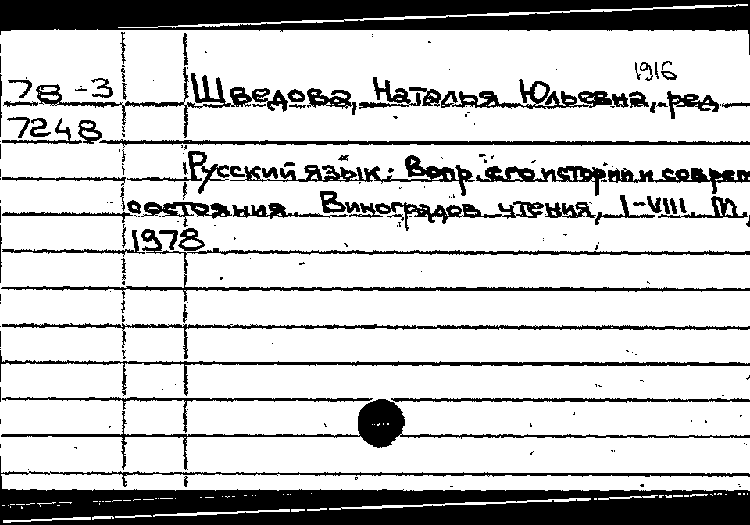 1916
78-3 Шведова, Наталья Юльевна, ред
7248
Русский язык: Вопр. его истории и соврем
состояния. Виноградов. чтения, I-VIII. М.,
1978.